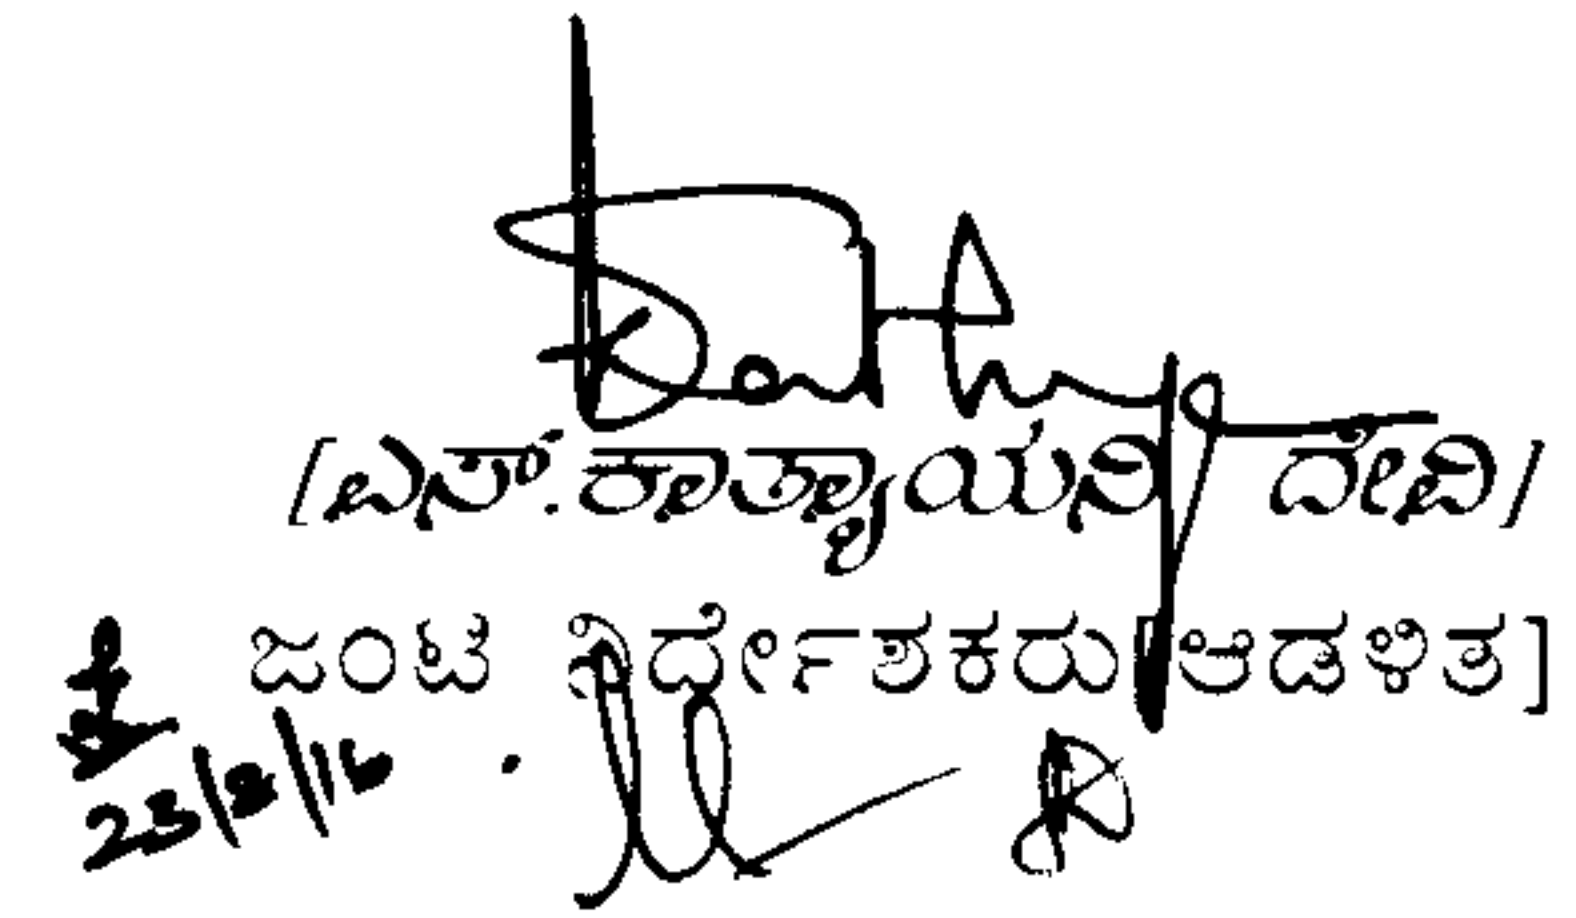 [ಎಸ್.ಕಾತ್ಯಾಯನಿ ದೇವಿ]
ಜಂಟಿ ನಿರ್ದೇಶಕರು[ಆಡಳಿತ]
23/8/16